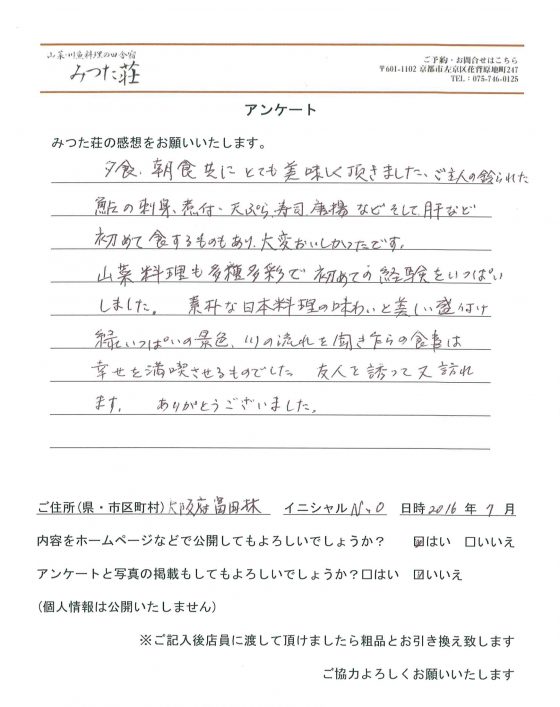 山菜・川魚料理の田舎宿
みつた荘
ご予約・お問合せはこちら
〒601-1102 京都市左京区花背原地町247
TEL：075-746-0125
アンケート
みつた荘の感想をお願いいたします。
夕食、朝食共にとても美味しく頂きました、ご主人の釣られた
鮎の刺身、煮付、天ぷら、寿司、唐揚などそして、肝など
初めて食するものもあり、大変おいしかったです。
山菜料理も多種多彩で初めての経験をいっぱい
しました。素朴な日本料理の味わいと美しい盛付け
緑いっぱいの景色、川の流れを聞き乍らの食事は
幸せを満喫させるものでした。友人を誘って又訪れ
ます。ありがとうございました。
ご住所(県・市区町村) 大阪府富田林 イニシャル N.O 日時 2016年7月
内容をホームページなどで公開してもよろしいでしょうか？ ☑はい □いいえ
アンケートと写真の掲載もしてもよろしいでしょうか？□はい ☑いいえ
(個人情報は公開いたしません)
※ご記入後店員に渡して頂けましたら粗品とお引き換え致します
ご協力よろしくお願いいたします